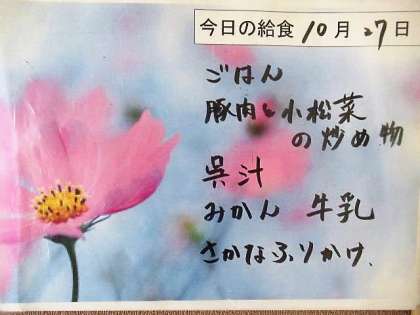 今日の給食 10月 27日
ごはん
豚肉と小松菜
の炒め物
呉汁
みかん 牛乳
さかなふりかけ、